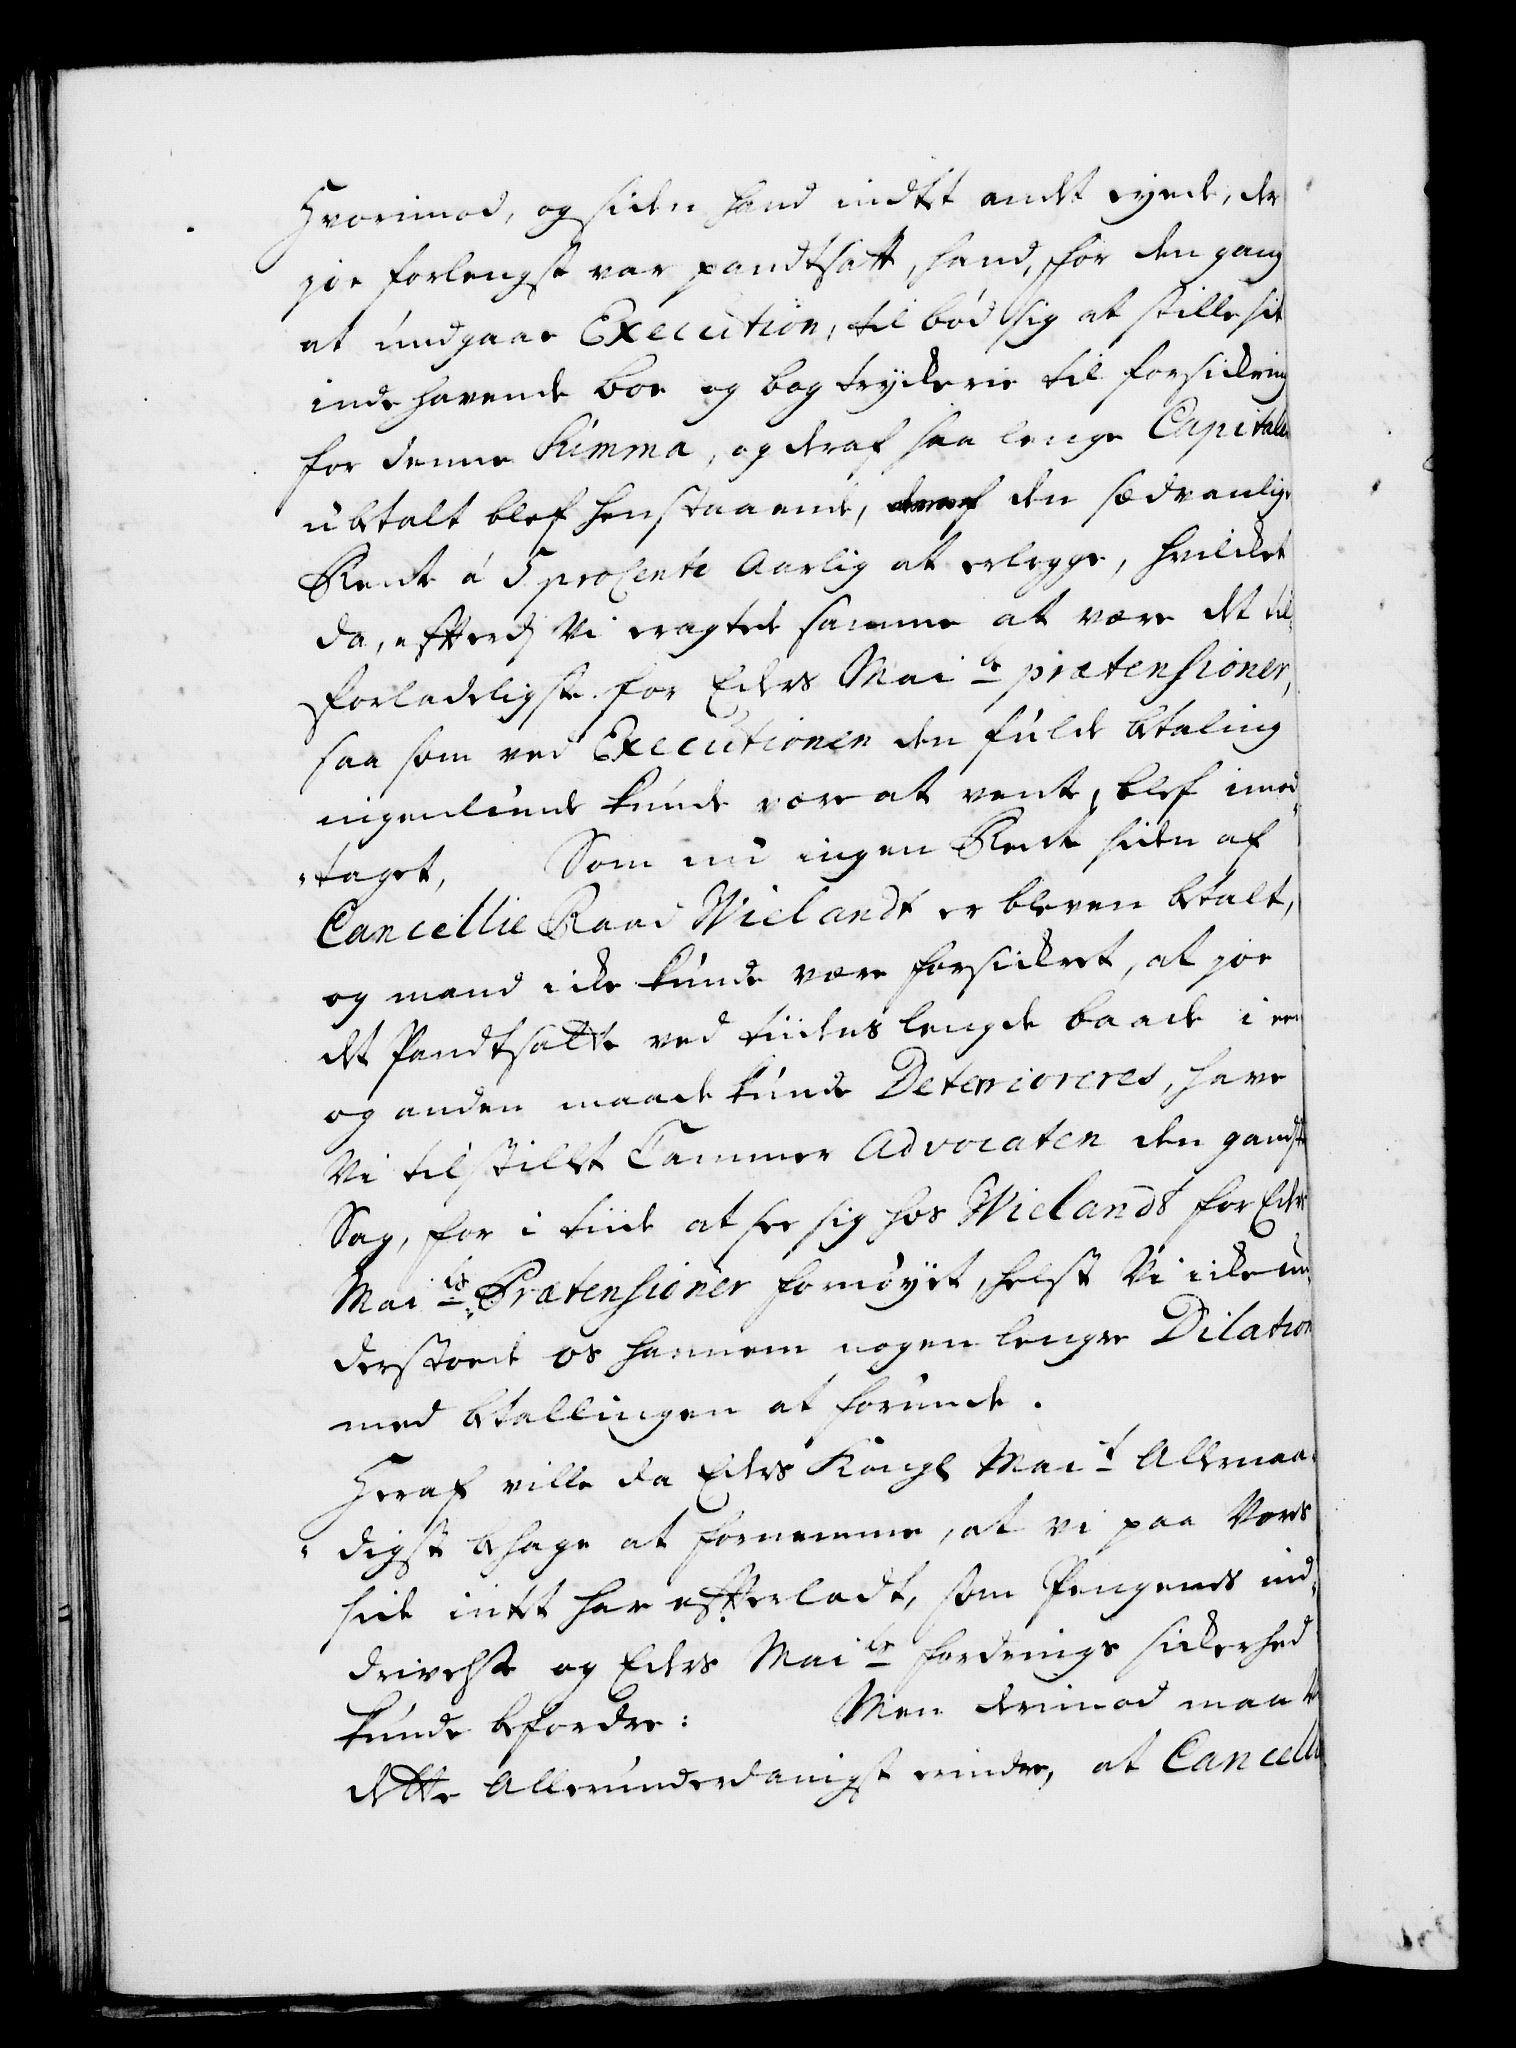 Hvorimod, og siden hand indtet andet eyede, der
joe forlengst var pandtsatt, hand, for den gang
at undgaae Execution, til bød sig at stille sit
inde havende boe og bog trykkerie til forsikring
for denne Summa, og deraf saa lenge Capitalen
ubetalt blef henstaaende, den sædvanlige
Rente á 5 procento Aarlig at erlegge, hvilket
da, efftterdj Vi eragtede samme at være det til¬
forladeligste for Eders Mai.ts prætensioner,
saa som ved Executionen den fulde betaling
ingenlunde kunde være at vente, blef imod¬
taget, Som nu ingen Rente siden af
Cancellie Raad Wielandt er bleven betalt,
og mand icke kunde være forsickret, at joe
det Pandtsatte ved tiidens lengde baade i een
og anden maade kunde Deterioreres, have
Vi tilstillet Cammer Advocaten den gandske
Sag, for i tiide at see sig hos Wielandt for Eders
Mai.ts Prætensioner fornøyet, helst Vi icke un¬
derstoede os hannem nogen lengre Dilation
med betallingen at forunde.
Heraf ville da Eders Kongl Mai.t Allernaa¬
digst behage at fornemme, at vi paa Vores
side intet har efterladt, som Pengenes ind¬
drivelse og Eders Mai.ts fordrings sickerhed
kunde befordre: Men derimod maa Vi
dette Allerunderdanigst erindre, at Cancellie